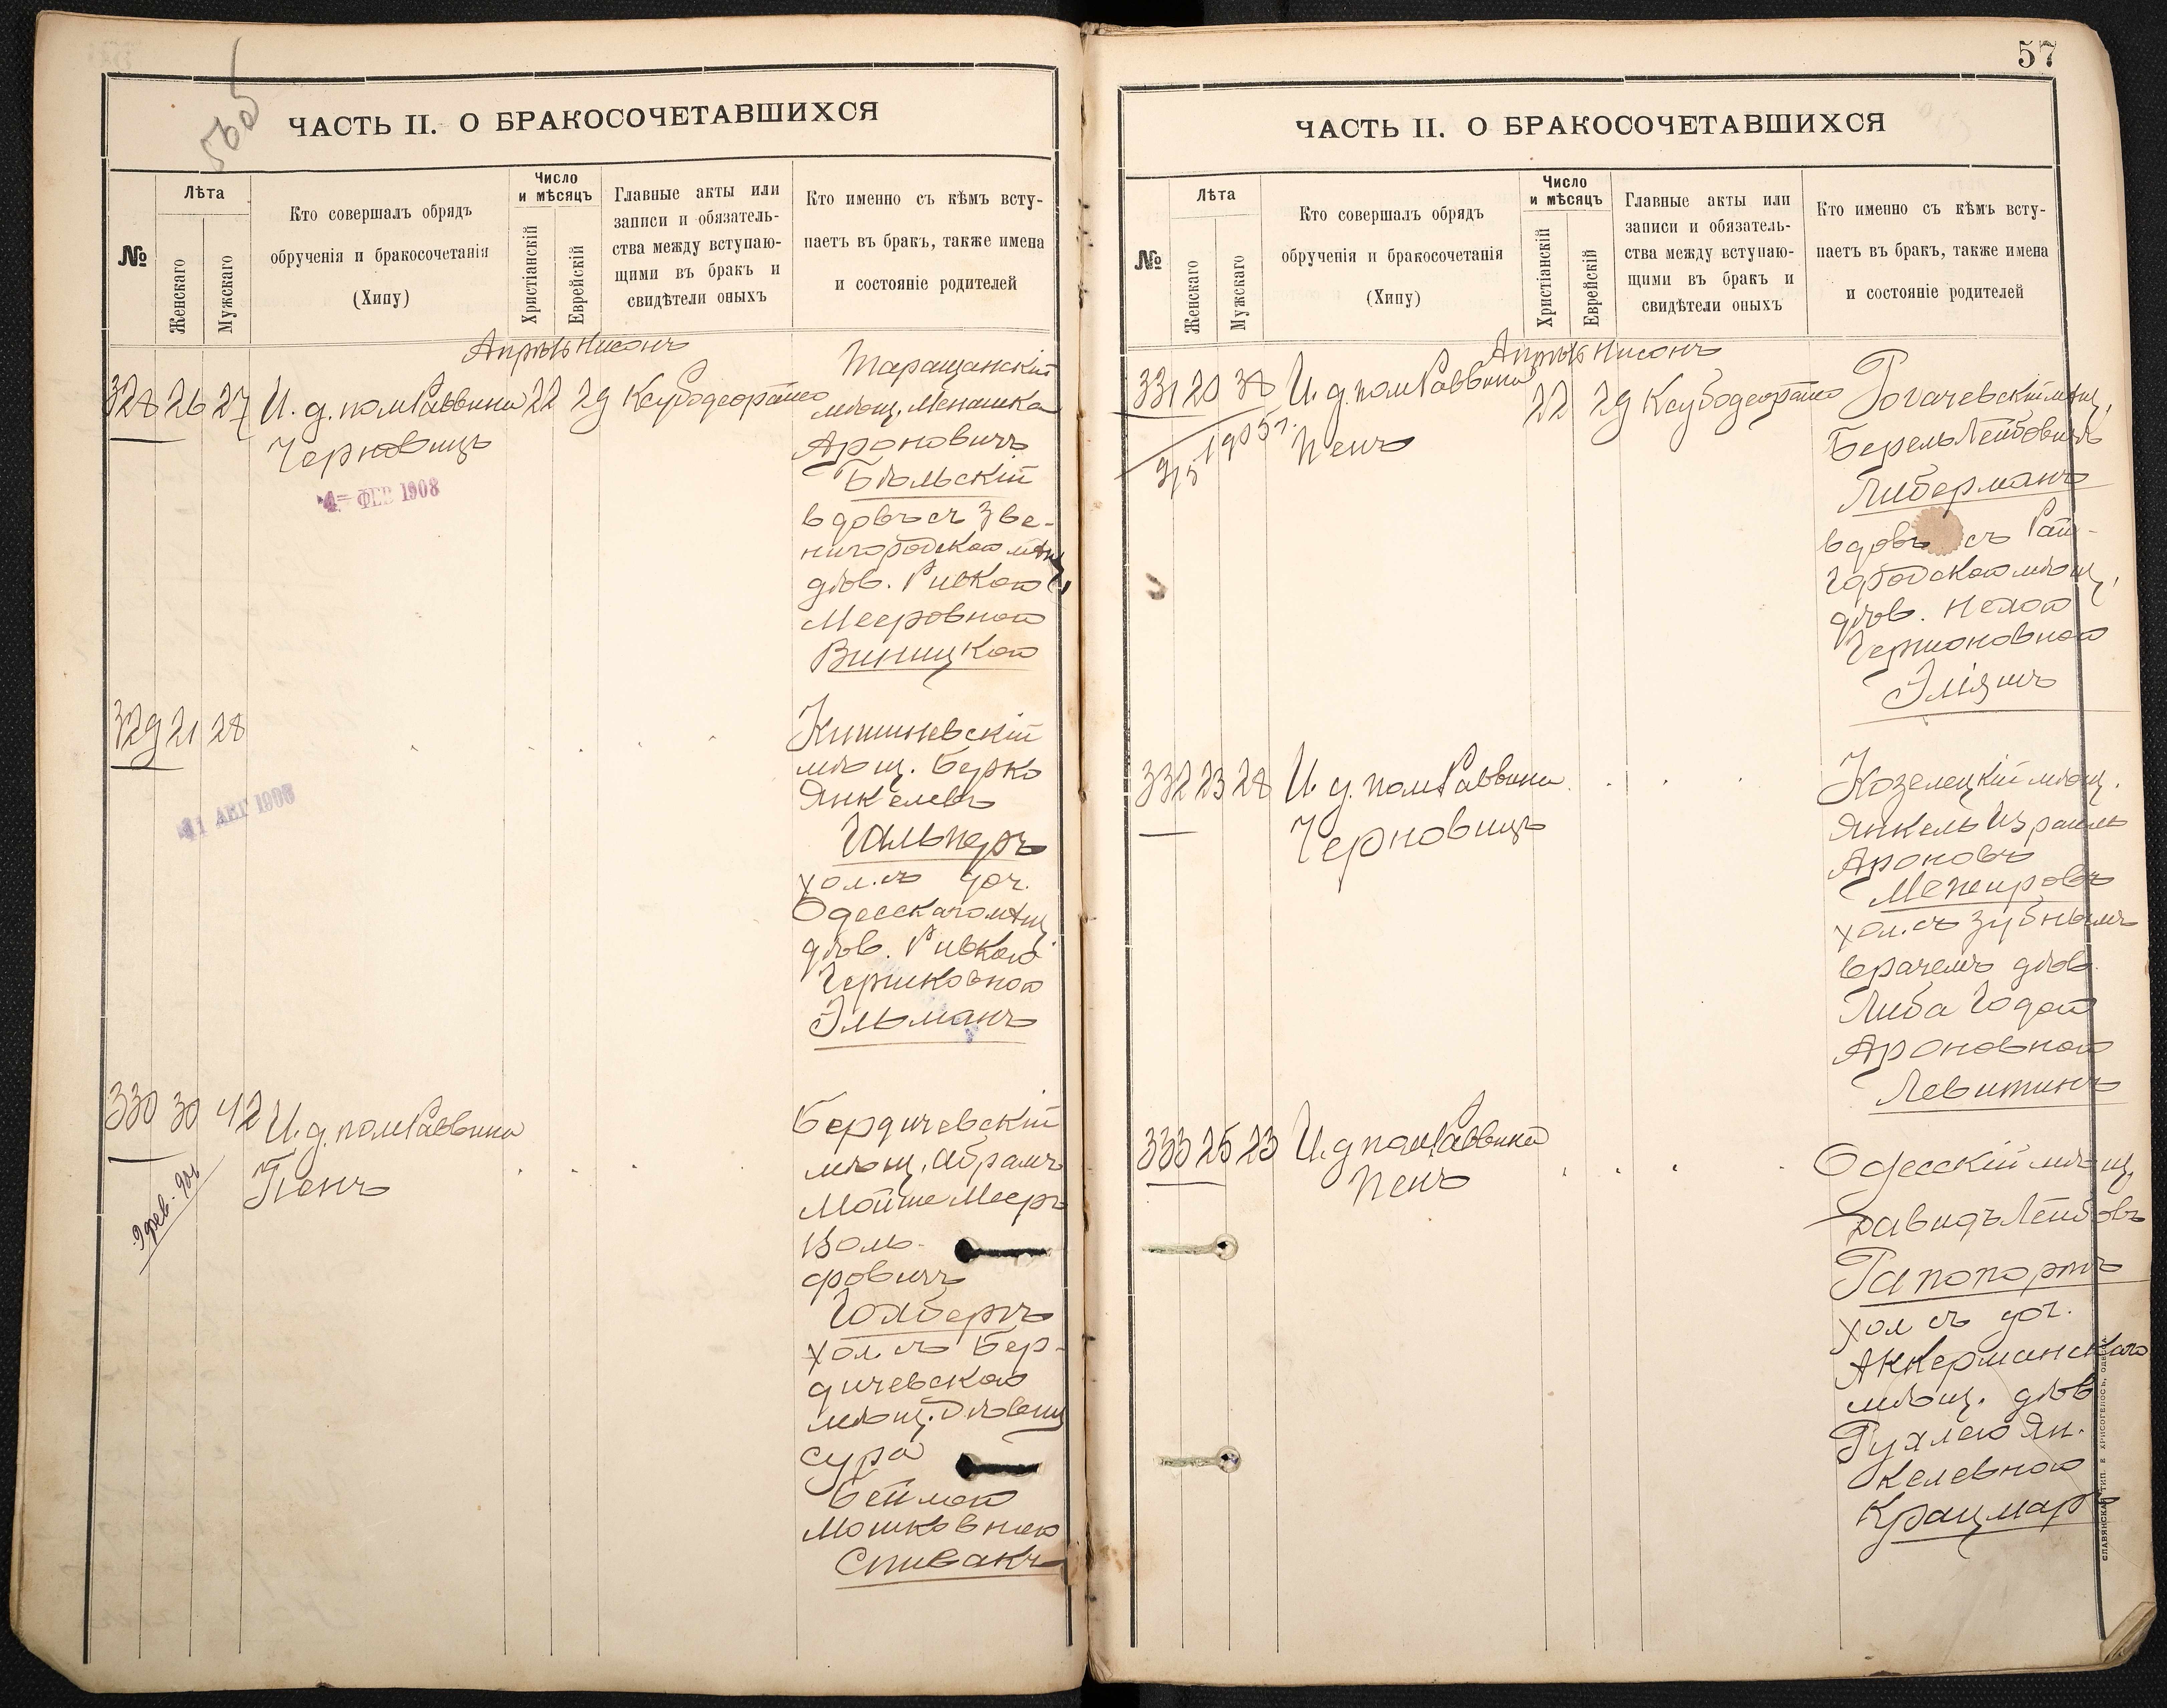 565
ЧАСТЬ II. О БРАКОСОЧЕТАВШИХСЯ
№
Лѣта
Женскаго
Мужскаго
Кто совершалъ обрядъ
обрученія и бракосочетанія
(Хипу)
Число
и мѣсяцъ
Христіанскій
Еврейскій
Главные акты или
записи и обязатель-
ства между вступаю-
щими въ бракъ и
свидѣтели оныхъ
Кто именно съ кѣмъ всту-
паетъ въ бракъ, также имена
и состояніе родителей
Апрѣль Нисонъ
328 26 27 И. д. пом Раввина 22 29
Черновицъ
4 = ФЕВ 1908
Таращанскій
мѣщ. Менашка
Ароновичъ
Бѣльскій
вдовъ съ Зве-
нигородской мѣщ.
дѣв. Ривкой
Мееровной
Виницкой
329 21 28
11 АВГ 1908
Кишиневскій
мѣщ. Берко
Янкелевъ
Гальперъ
хол. съ доч.
Одесскаго мѣщ.
дѣв. Ривкой
Гершковной
Эльманъ
330 30 42 И. д. пом Раввина
Пенъ
Бердичевскій
мѣщ. Абрамъ
Мойше Мееръ
Воль-
фовичъ
Голбергъ
хол съ Бер-
дичевской
мѣщ. дѣвиц
Сура
Бейлой
Мошковною
Спивакъ
57
ЧАСТЬ II. О БРАКОСОЧЕТАВШИХСЯ
№
Лѣта
Женскаго
Мужскаго
Кто совершалъ обрядъ
обрученія и бракосочетанія
(Хипу)
Число
и мѣсяцъ
Христіанскій
Еврейскій
Главные акты или
записи и обязатель-
ства между вступаю-
щими въ бракъ и
свидѣтели оныхъ
Кто именно съ кѣмъ всту-
паетъ въ бракъ, также имена
и состояніе родителей
Апрѣль Нисонъ
331 20 38 И. д. пом Раввина 22 29
Пенъ
9/5 1905 г.
Рогачевскій мѣщ.
Берель Лейбовичъ
Либерманъ
вдовъ съ Рай-
городской мѣщ.
дѣв. Нехой
Гершоновной
Эліяшъ
332 23 28 И. д. пом Раввина
Черновицъ
Козелецкій мѣщ.
Янкель Израиль
Ароновъ
Межировъ
хол. съ зубнымъ
врачемъ дѣв.
Либа Годой
Ароновной
Левитинъ
333 25 23 И. д пом Раввина
Пенъ
Одесскій мѣщ.
Давидъ Лейбовъ
Рапопортъ
хол съ доч.
Аккерманскаго
мѣщ. дѣв
Рухлею Ян-
келевной
Крацмаръ
СЛАВЯНСКАЯ ТИП. Е ХРИСОГЕЛОСЪ, ОДЕССА